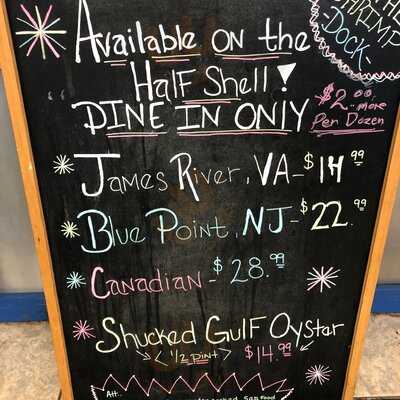 Available on the
Half Shell!
DINE IN ONLY
SHRIMP
DOCK
$2.00 more
Per Dozen
James River, VA - $14.99
Blue Point, NJ - $22.99
Canadian - $28.99
Shucked Gulf Oyster
< 1/2 pint > $14.99
Att:
Sea Food